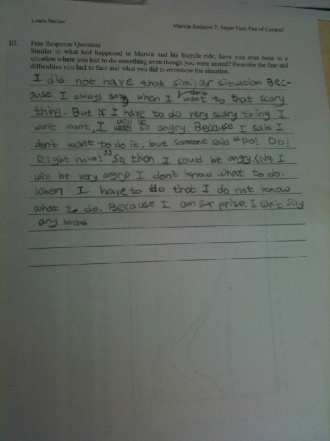 Marvin Redpost 7: Super Fast, Out of Control!
III. Free Response Question
Similar to what had happened to Marvin and his bicycle ride, have you ever been in a
situation where you had to do something even though you were scared? Describe the fear and
difficulties you had to face and what you did to overcome the situation.
I did not have that similar situation Bec-
ause I always say when I want to that scary
thing. But if I have to do very scary thing I
dont want, I will be so angry. Because I said I
don't want to do is, but someone said "Do! Do!
Right now!" So, then I could be angry. (No, I
will be very angry) I don't know what to do.
When I have to do that I do not know
what to do. Because I am surprise. I can't say
any word.